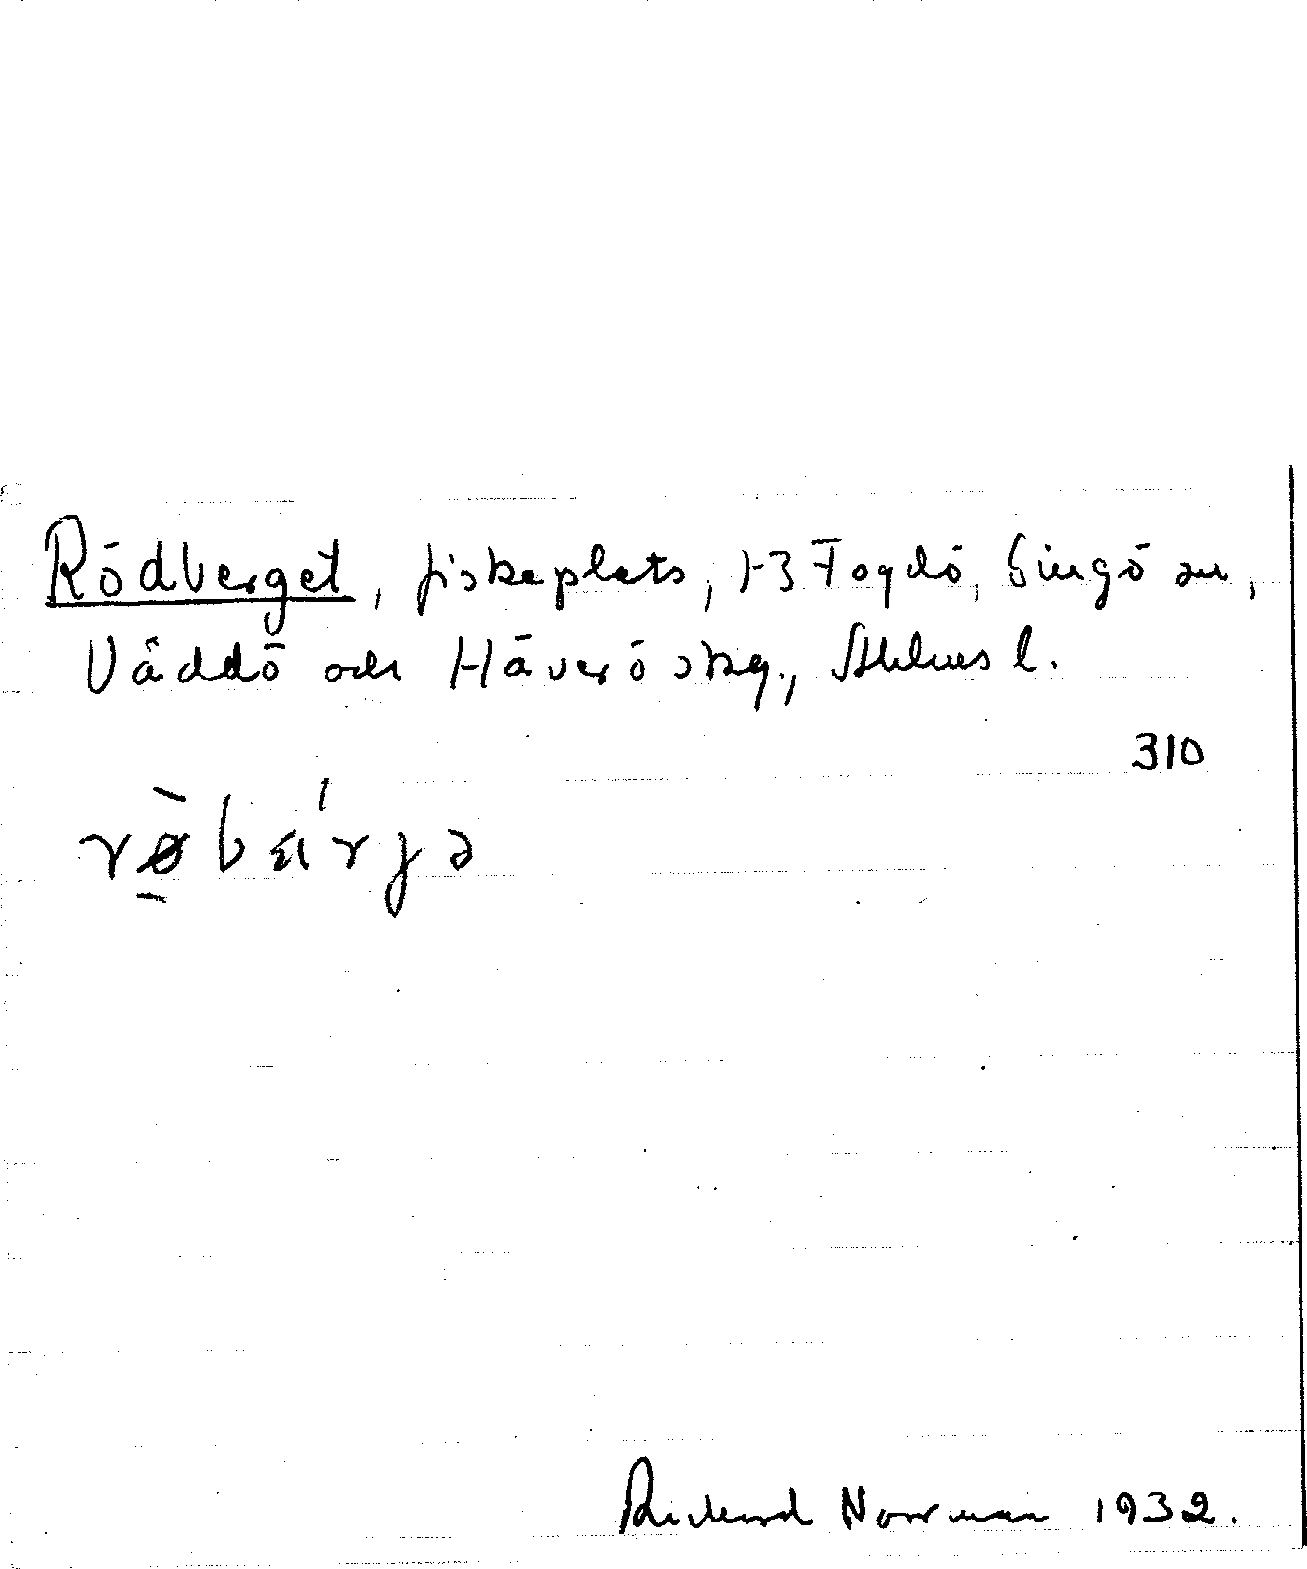 Rödberget, fiskeplats, 1-3 Fogdö, Singö sn,
Väddö och Häverö skg., Sthlms l.
310
rø̀bæ̀rjə
Rickard Norrman 1932.